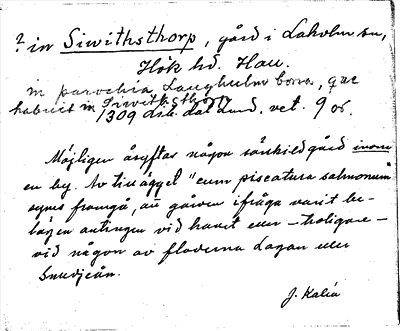 ? in Siwithsthorp, gård i Laholm sn,
Hök hd. Hall.
in parochia Laugholm bona, que
habuit in Siwithsthorp
1309 dsk. dat. Lund. vet. 9 or.
Möjligen åsyftas någon särskild gård inom
en by. Av tillägget "cum piscatura salmonum"
synes framgå, att gården ifråga varit be-
lägen antingen vid havet eller – troligare –
vid någon av floderna Lagan eller
Smedjeån.
J. Kalén